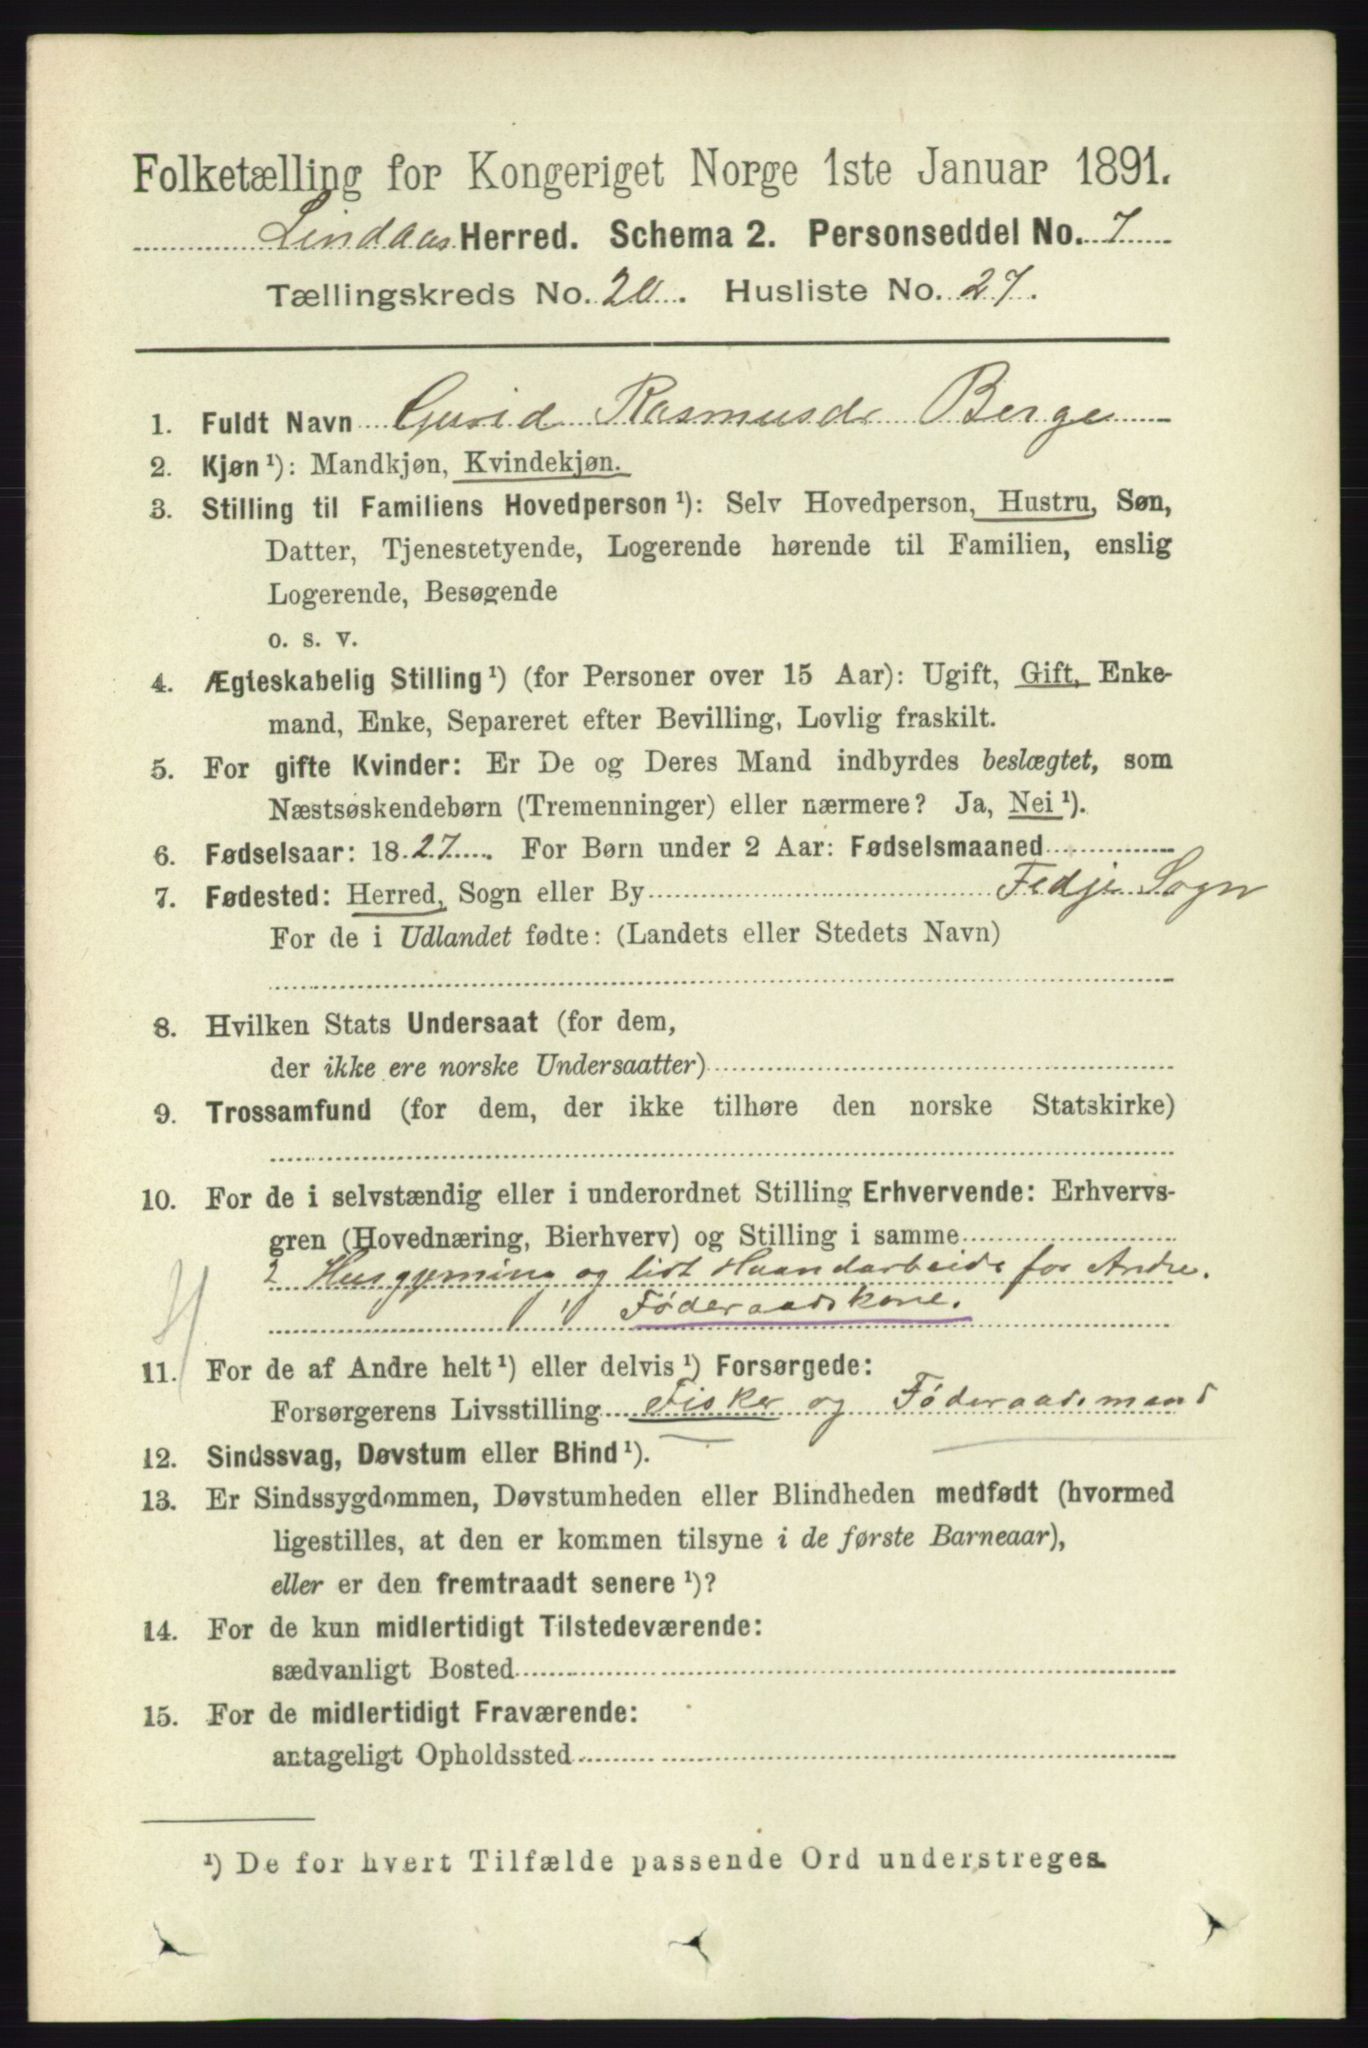 Folketælling for Kongeriget Norge 1ste Januar 1891.
Lindaas Herred. Schema 2. Personseddel No. 7
Tællingskreds No. 20. Husliste No. 27.
1. Fuldt Navn Gurid Rasmusdr Berge
2. Kjøn ¹): Mandkjøn, Kvindekjøn.
3. Stilling til Familiens Hovedperson ¹): Selv Hovedperson, Hustru, Søn,
Datter, Tjenestetyende, Logerende hørende til Familien, enslig
Logerende, Besøgende
o. s. v.
4. Ægteskabelig Stilling ¹) (for Personer over 15 Aar): Ugift, Gift, Enke-
mand, Enke, Separeret efter Bevilling, Lovlig fraskilt.
5. For gifte Kvinder: Er De og Deres Mand indbyrdes beslægtet, som
Næstsøskendebørn (Tremenninger) eller nærmere? Ja, Nei ¹).
6. Fødselsaar: 1827. For Børn under 2 Aar: Fødselsmaaned
7. Fødested: Herred, Sogn eller By Fedje Sogn
For de i Udlandet fødte: (Landets eller Stedets Navn)
8. Hvilken Stats Undersaat (for dem,
der ikke ere norske Undersaatter)
9. Trossamfund (for dem, der ikke tilhøre den norske Statskirke)
10. For de i selvstændig eller i underordnet Stilling Erhvervende: Erhvervs-
gren (Hovednæring, Bierhverv) og Stilling i samme
2 Husgjerning og lidt Haandarbeide for Andre.
1 Føderaadskone.
11. For de af Andre helt ¹) eller delvis ¹) Forsørgede:
Forsørgerens Livsstilling Fisker og Føderaadsmand
12. Sindssvag, Døvstum eller Blind ¹).
13. Er Sindssygdommen, Døvstumheden eller Blindheden medfødt (hvormed
ligestilles, at den er kommen tilsyne i de første Barneaar),
eller er den fremtraadt senere ¹)?
14. For de kun midlertidigt Tilstedeværende:
sædvanligt Bosted
15. For de midlertidigt Fraværende:
antageligt Opholdssted
¹) De for hvert Tilfælde passende Ord understreges.